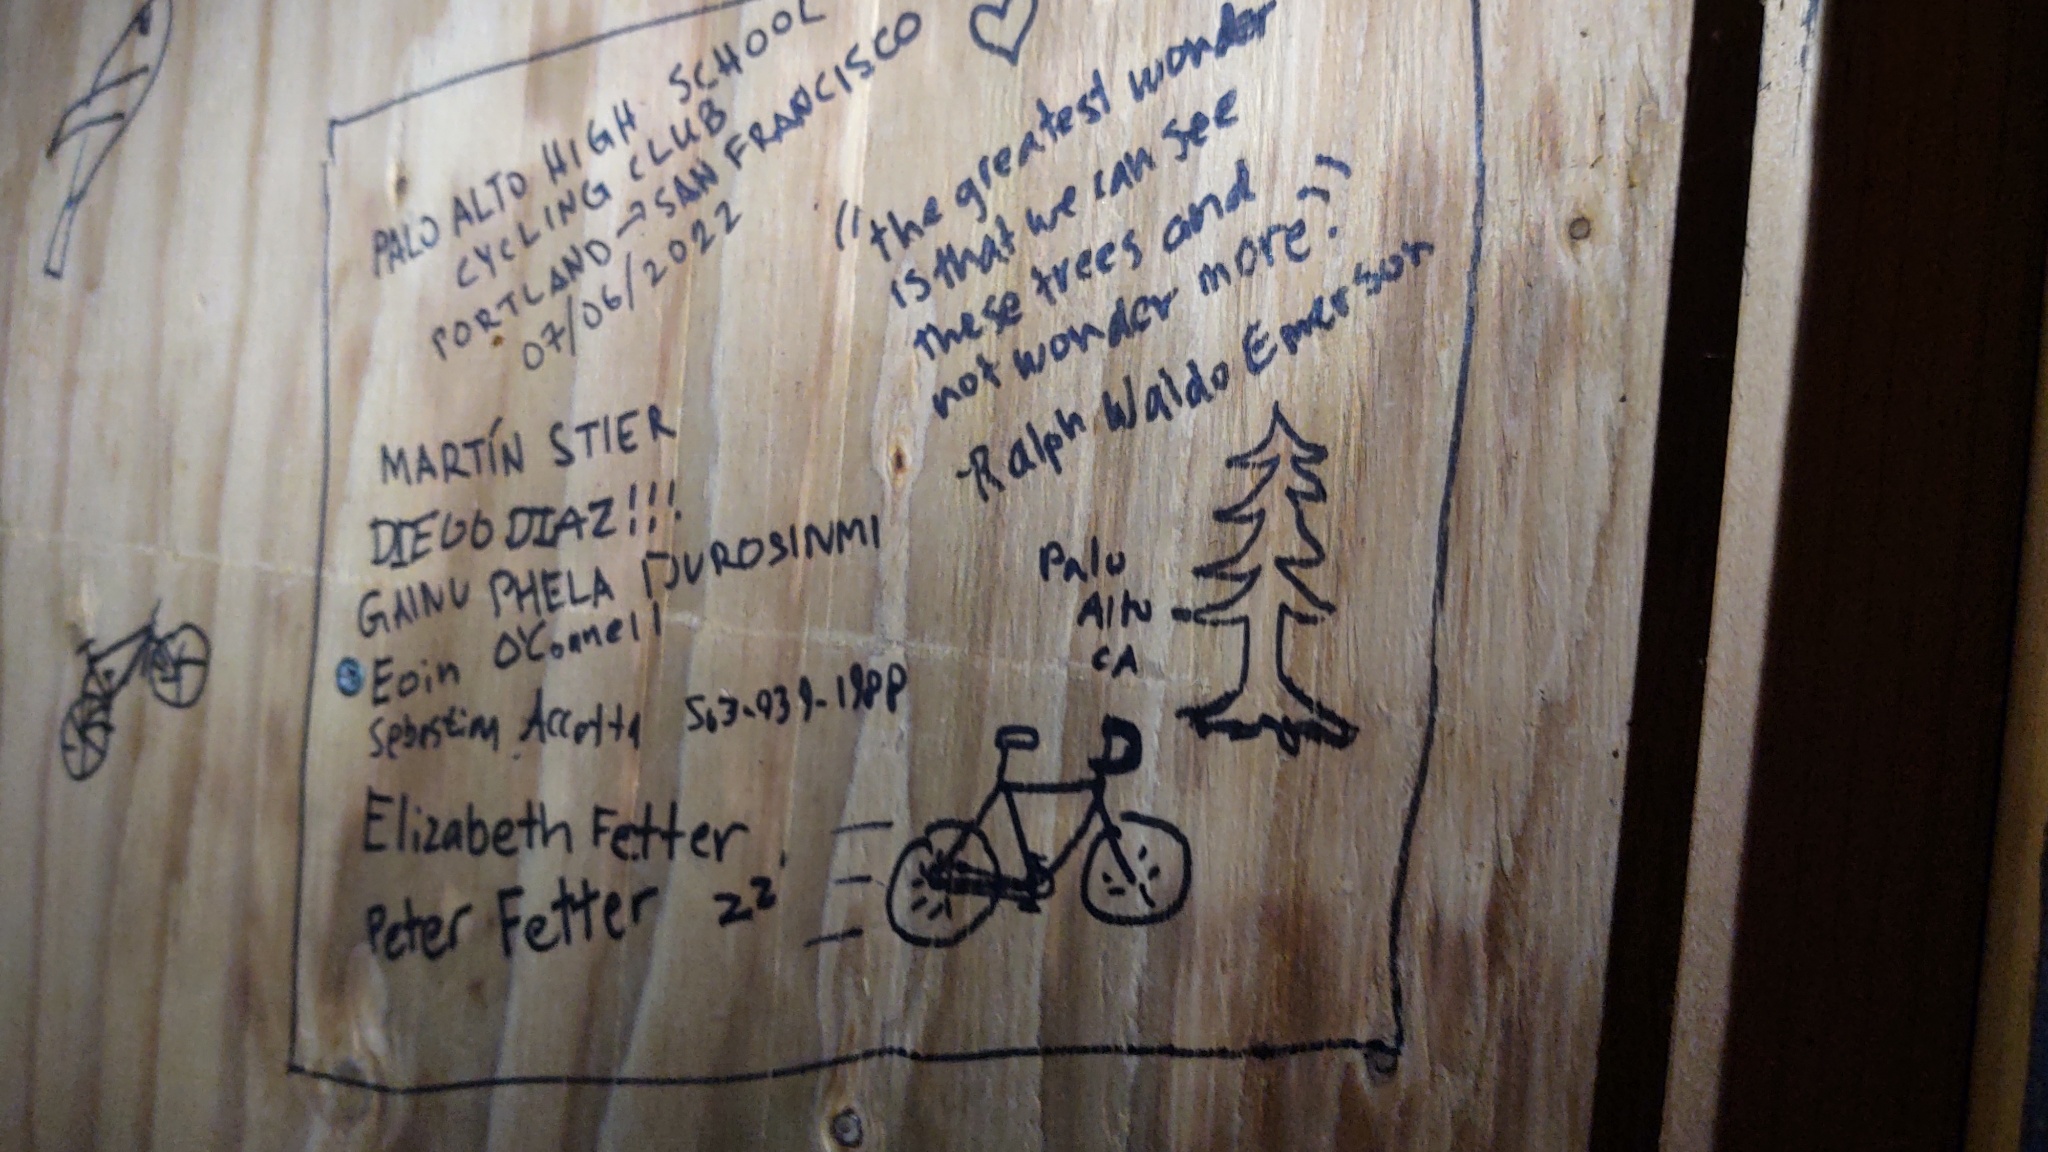 PALO ALTO HIGH SCHOOL
CYCLING CLUB
PORTLAND → SAN FRANCISCO
07/06/2022
"the greatest wonder
is that we can see
these trees and
not wonder more."
-Ralph Waldo Emerson
MARTÍN STIER
DIEGO DIAZ!!!
GAINU PHELA DUROSINMI
Eoin O'Connell
Sebastian
Elizabeth Fetter
Peter Fetter 22'
Palo
Alto
CA